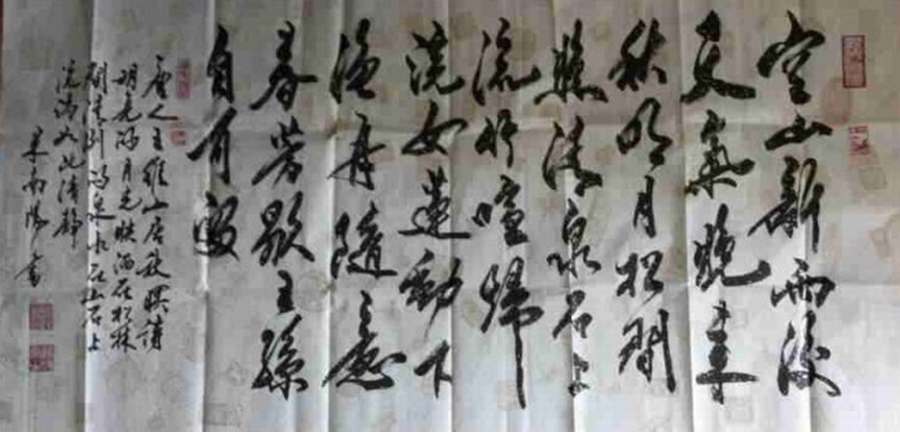 空山新雨後
天氣晚來
秋明月松間
照清泉石上
流竹喧歸
浣女蓮動下
漁舟隨意
春芳歇王孫
自可留
唐人王維山居秋暝詩
明亮的月光映洒在松林
間清冽的泉水在山石上
流淌如此清靜
南陽書